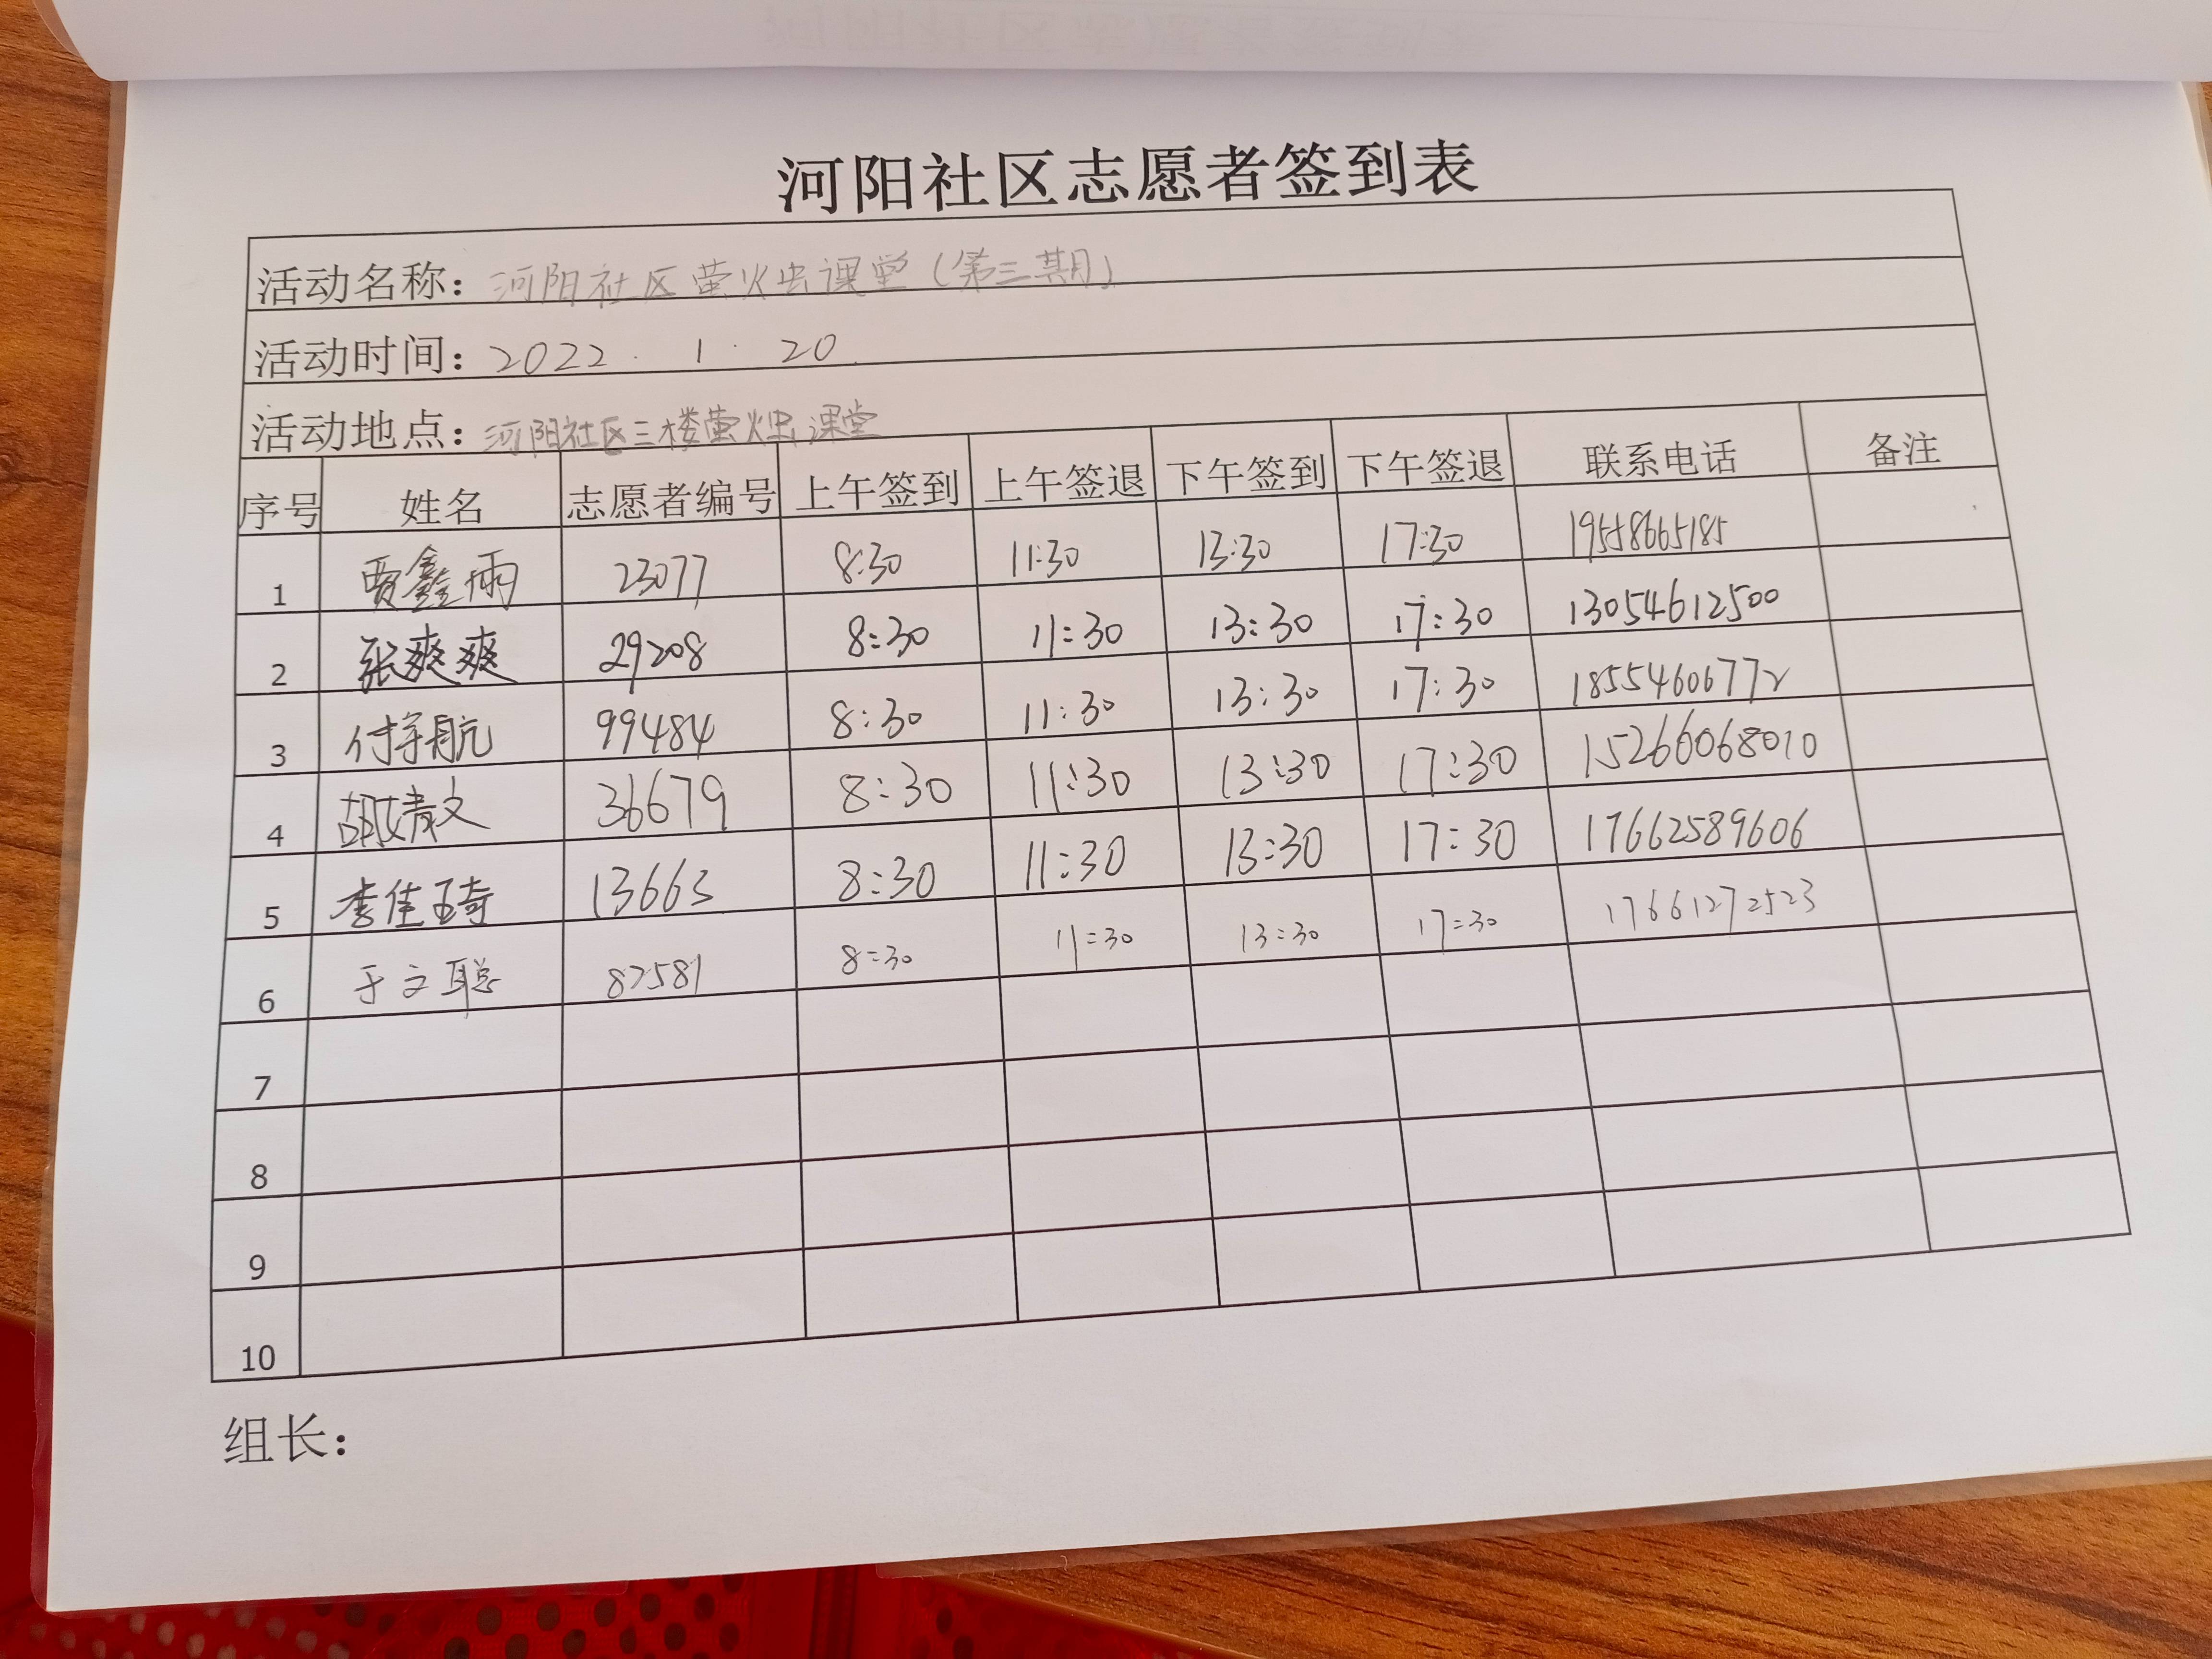 河阳社区志愿者签到表
活动名称：河阳社区萤火虫课堂（第三期）
活动时间：2022.1.20.
活动地点：河阳社区三楼萤火虫课堂
序号 姓名 志愿者编号 上午签到 上午签退 下午签到 下午签退 联系电话 备注
1 贾鑫雨 23077 8:30 11:30 13:30 17:30 19558665185
2 张爽爽 29208 8:30 11:30 13:30 17:30 13054612500
3 付宇航 99484 8:30 11:30 13:30 17:30 18554606772
4 胡婧文 36679 8:30 11:30 13:30 17:30 15266068010
5 李佳琦 13663 8:30 11:30 13:30 17:30 17662589606
6 于文聪 82581 8:30 11:30 13:30 17:30 17661272523
7
8
9
10
组长：